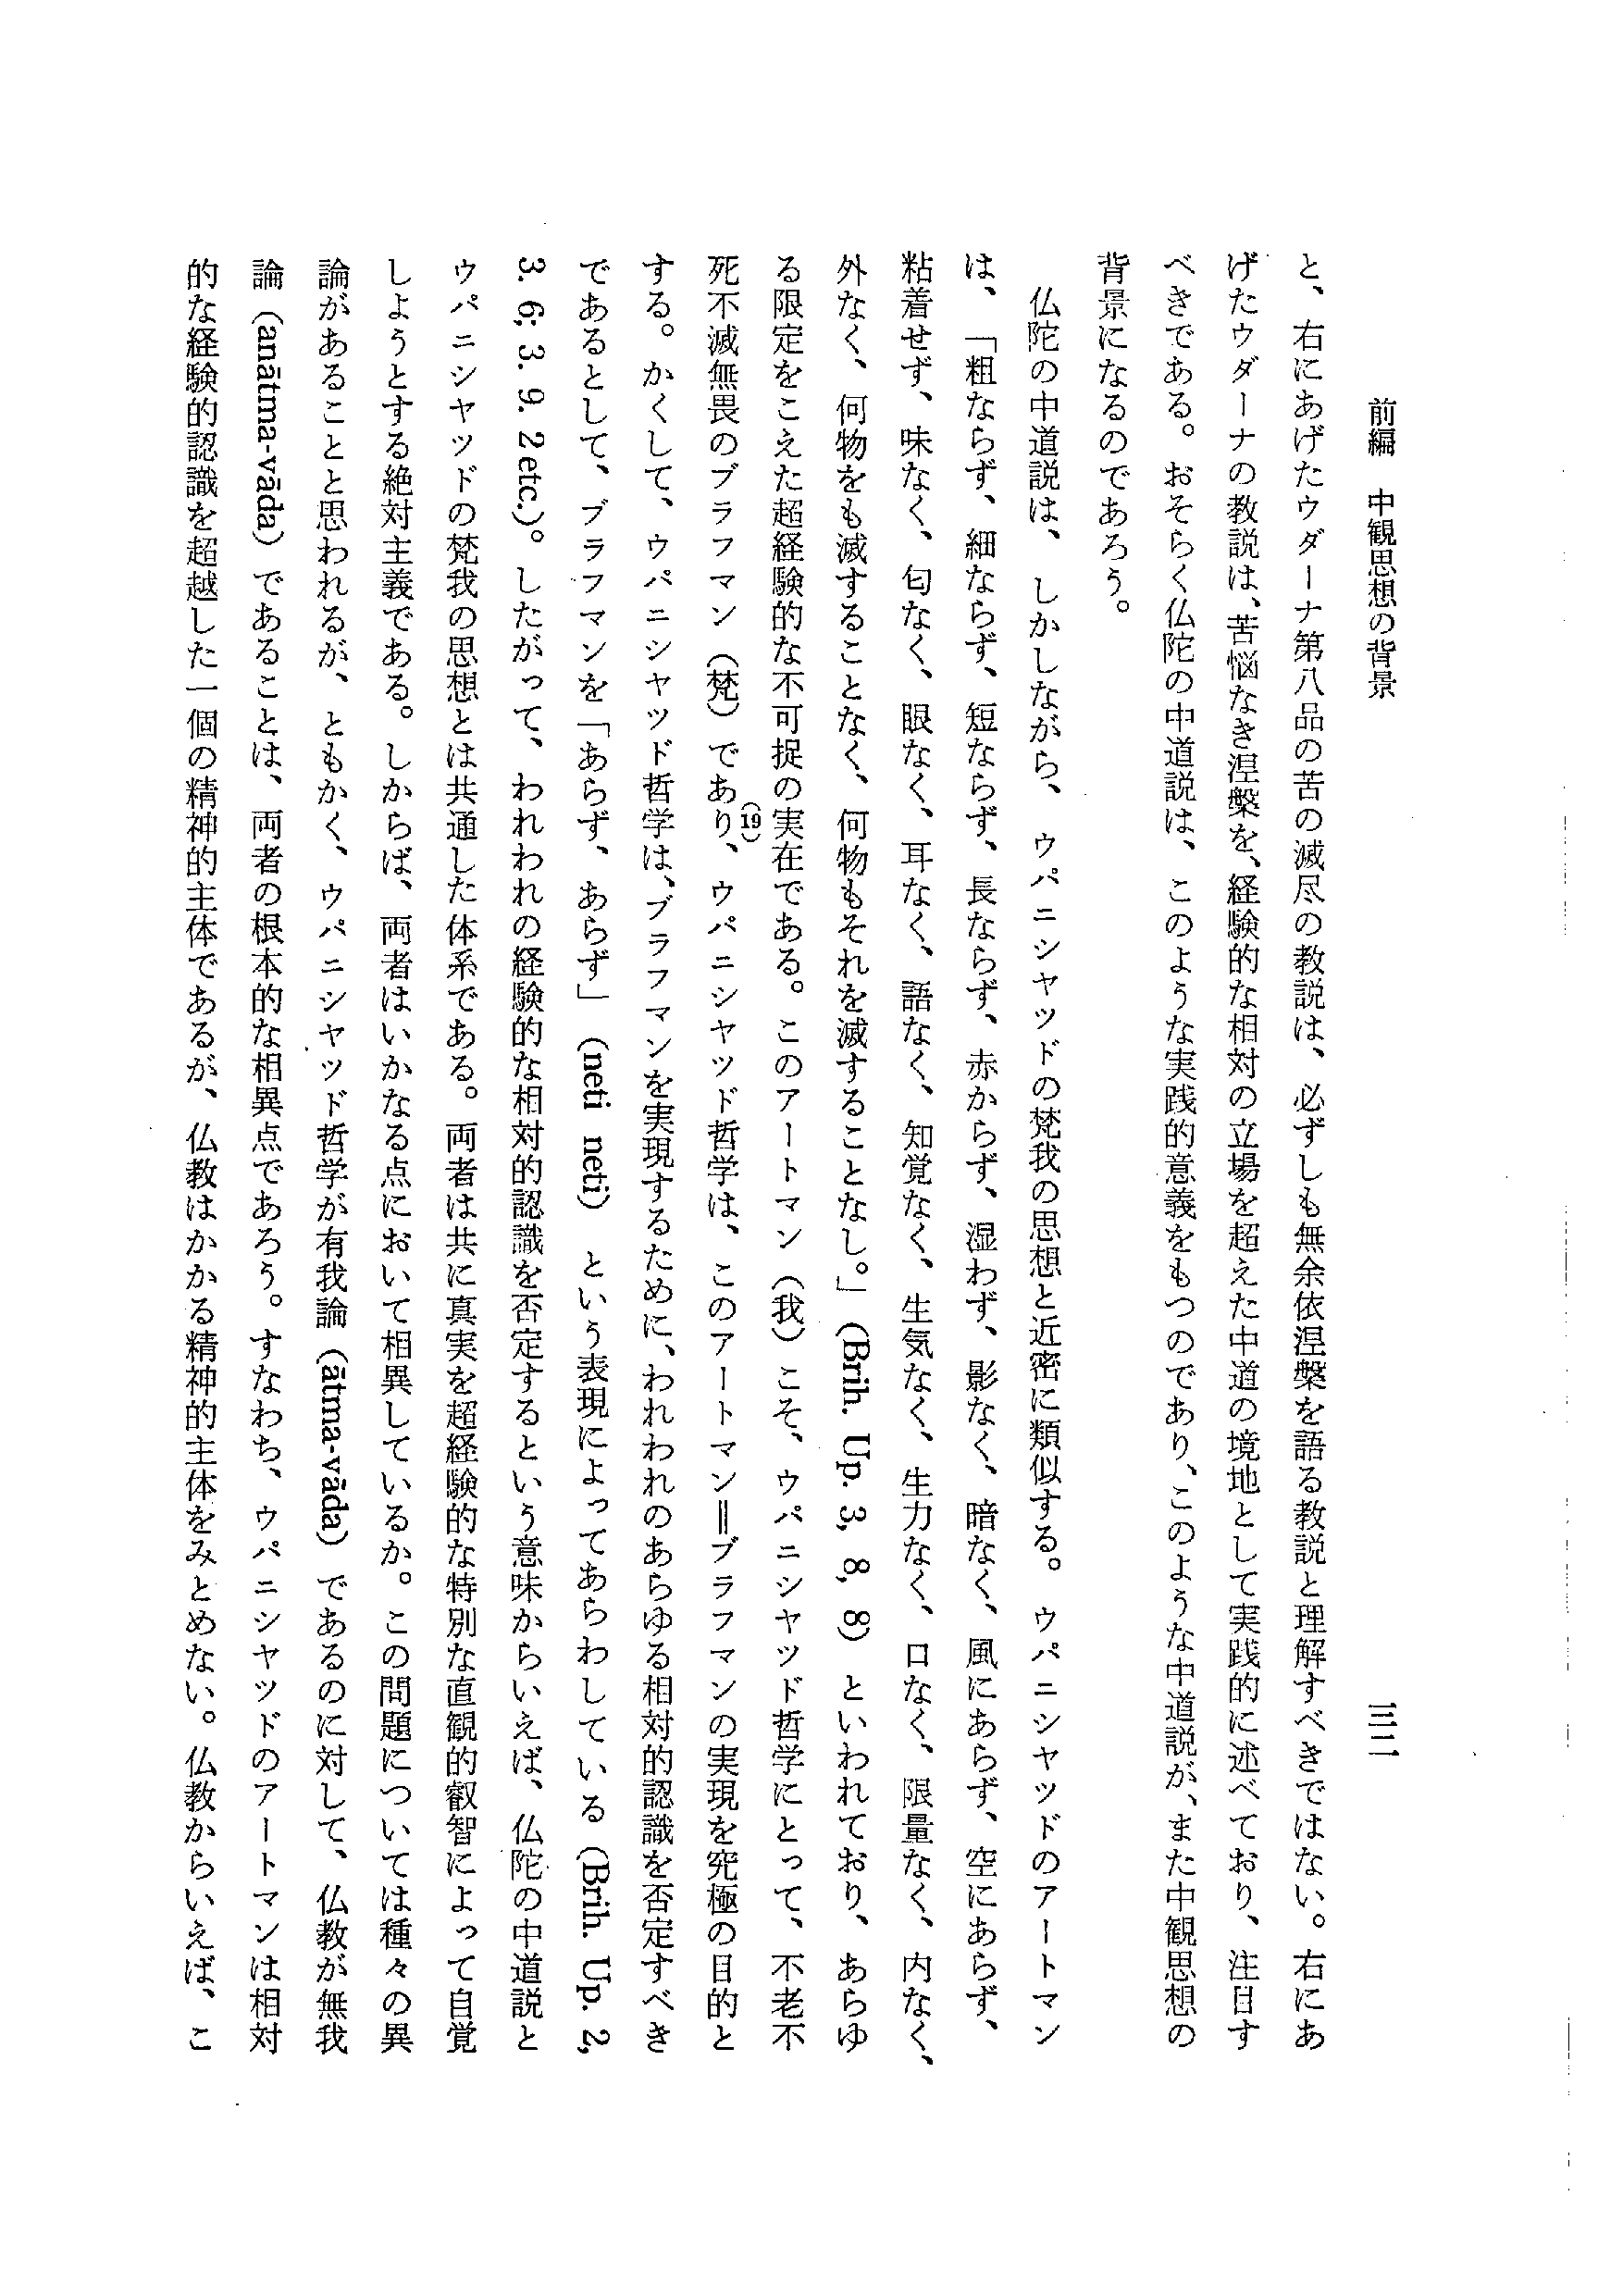 前編　中観思想の背景
三二
と、右にあげたウダーナ第八品の苦の滅尽の教説は、必ずしも無余依涅槃を語る教説と理解すべきではない。右にあ
げたウダーナの教説は、苦悩なき涅槃を、経験的な相対の立場を超えた中道の境地として実践的に述べており、注目す
べきである。おそらく仏陀の中道説は、このような実践的意義をもつのであり、このような中道説が、また中観思想の
背景になるのであろう。
　仏陀の中道説は、しかしながら、ウパニシャッドの梵我の思想と近密に類似する。ウパニシャッドのアートマン
は、「粗ならず、細ならず、短ならず、長ならず、赤からず、湿わず、影なく、暗なく、風にあらず、空にあらず、
粘着せず、味なく、匂なく、眼なく、耳なく、語なく、知覚なく、生気なく、生力なく、口なく、限量なく、内なく、
外なく、何物をも滅することなく、何物もそれを滅することなし。」（Brih. Up. 3, 8, 8）といわれており、あらゆ
る限定をこえた超経験的な不可捉の実在である。このアートマン（我）こそ、ウパニシャッド哲学にとって、不老不
死不滅無畏のブラフマン（梵）であり、(19)ウパニシャッド哲学は、このアートマン＝ブラフマンの実現を究極の目的と
する。かくして、ウパニシャッド哲学は、ブラフマンを実現するために、われわれのあらゆる相対的認識を否定すべき
であるとして、ブラフマンを「あらず、あらず」（neti neti）という表現によってあらわしている（Brih. Up. 2,
3. 6; 3. 9. 2 etc.）。したがって、われわれの経験的な相対的認識を否定するという意味からいえば、仏陀の中道説と
ウパニシャッドの梵我の思想とは共通した体系である。両者は共に真実を超経験的な特別な直観的叡智によって自覚
しようとする絶対主義である。しからば、両者はいかなる点において相異しているか。この問題については種々の異
論があることと思われるが、ともかく、ウパニシャッド哲学が有我論（ātma-vāda）であるのに対して、仏教が無我
論（anātma-vāda）であることは、両者の根本的な相異点であろう。すなわち、ウパニシャッドのアートマンは相対
的な経験的認識を超越した一個の精神的主体であるが、仏教はかかる精神的主体をみとめない。仏教からいえば、こ